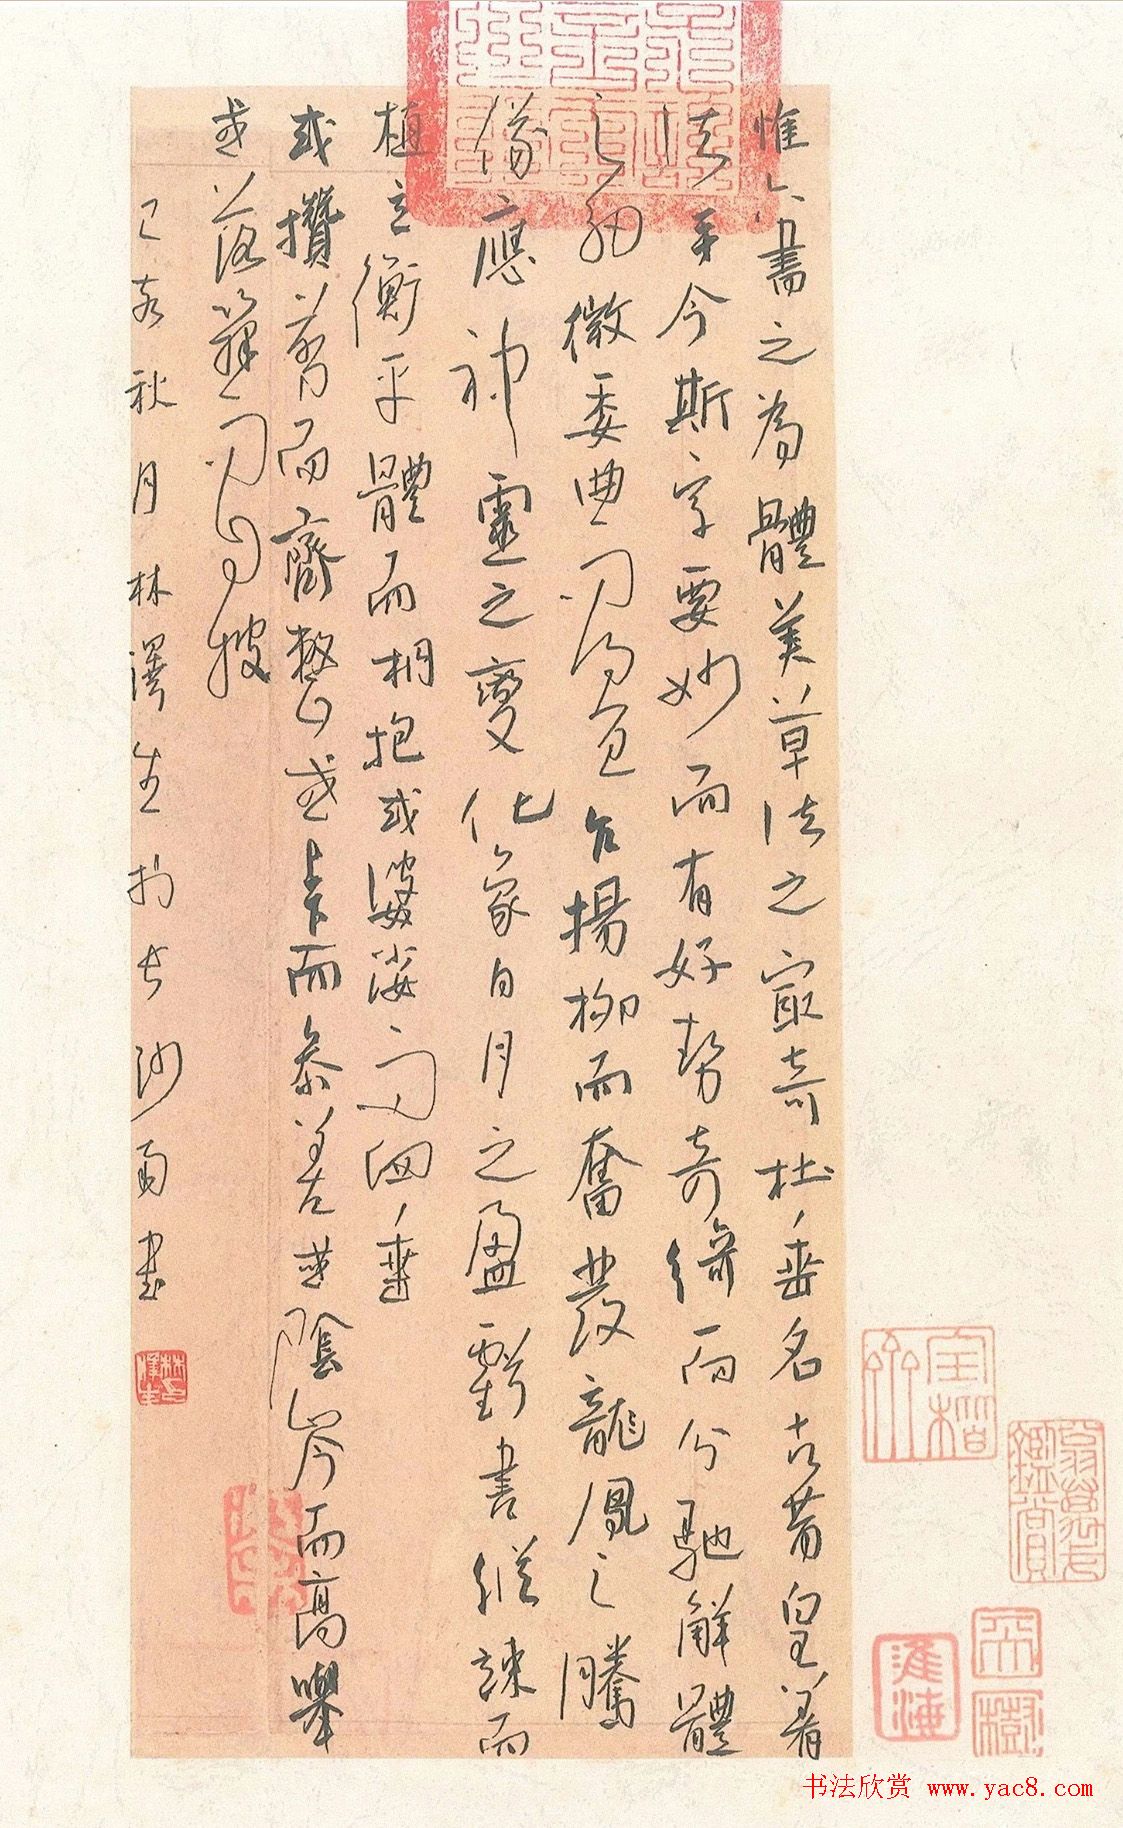 惟六書之為體美草法之最奇杜垂名古昔皇著
法乎今斯字要妙而有好勢奇綺而分馳解體
之細微委曲而得宜乍揚柳而奮發龍鳳之騰
儀應神靈之變化象日月之盈虧書縱竦而
植立衡平體而相抱或婆娑而四垂
或攢翦而齊整或上下而參差或陰岑而高舉
或落籜而自披
己亥秋月林澤生於長沙雨書
书法欣赏 www.yac8.com